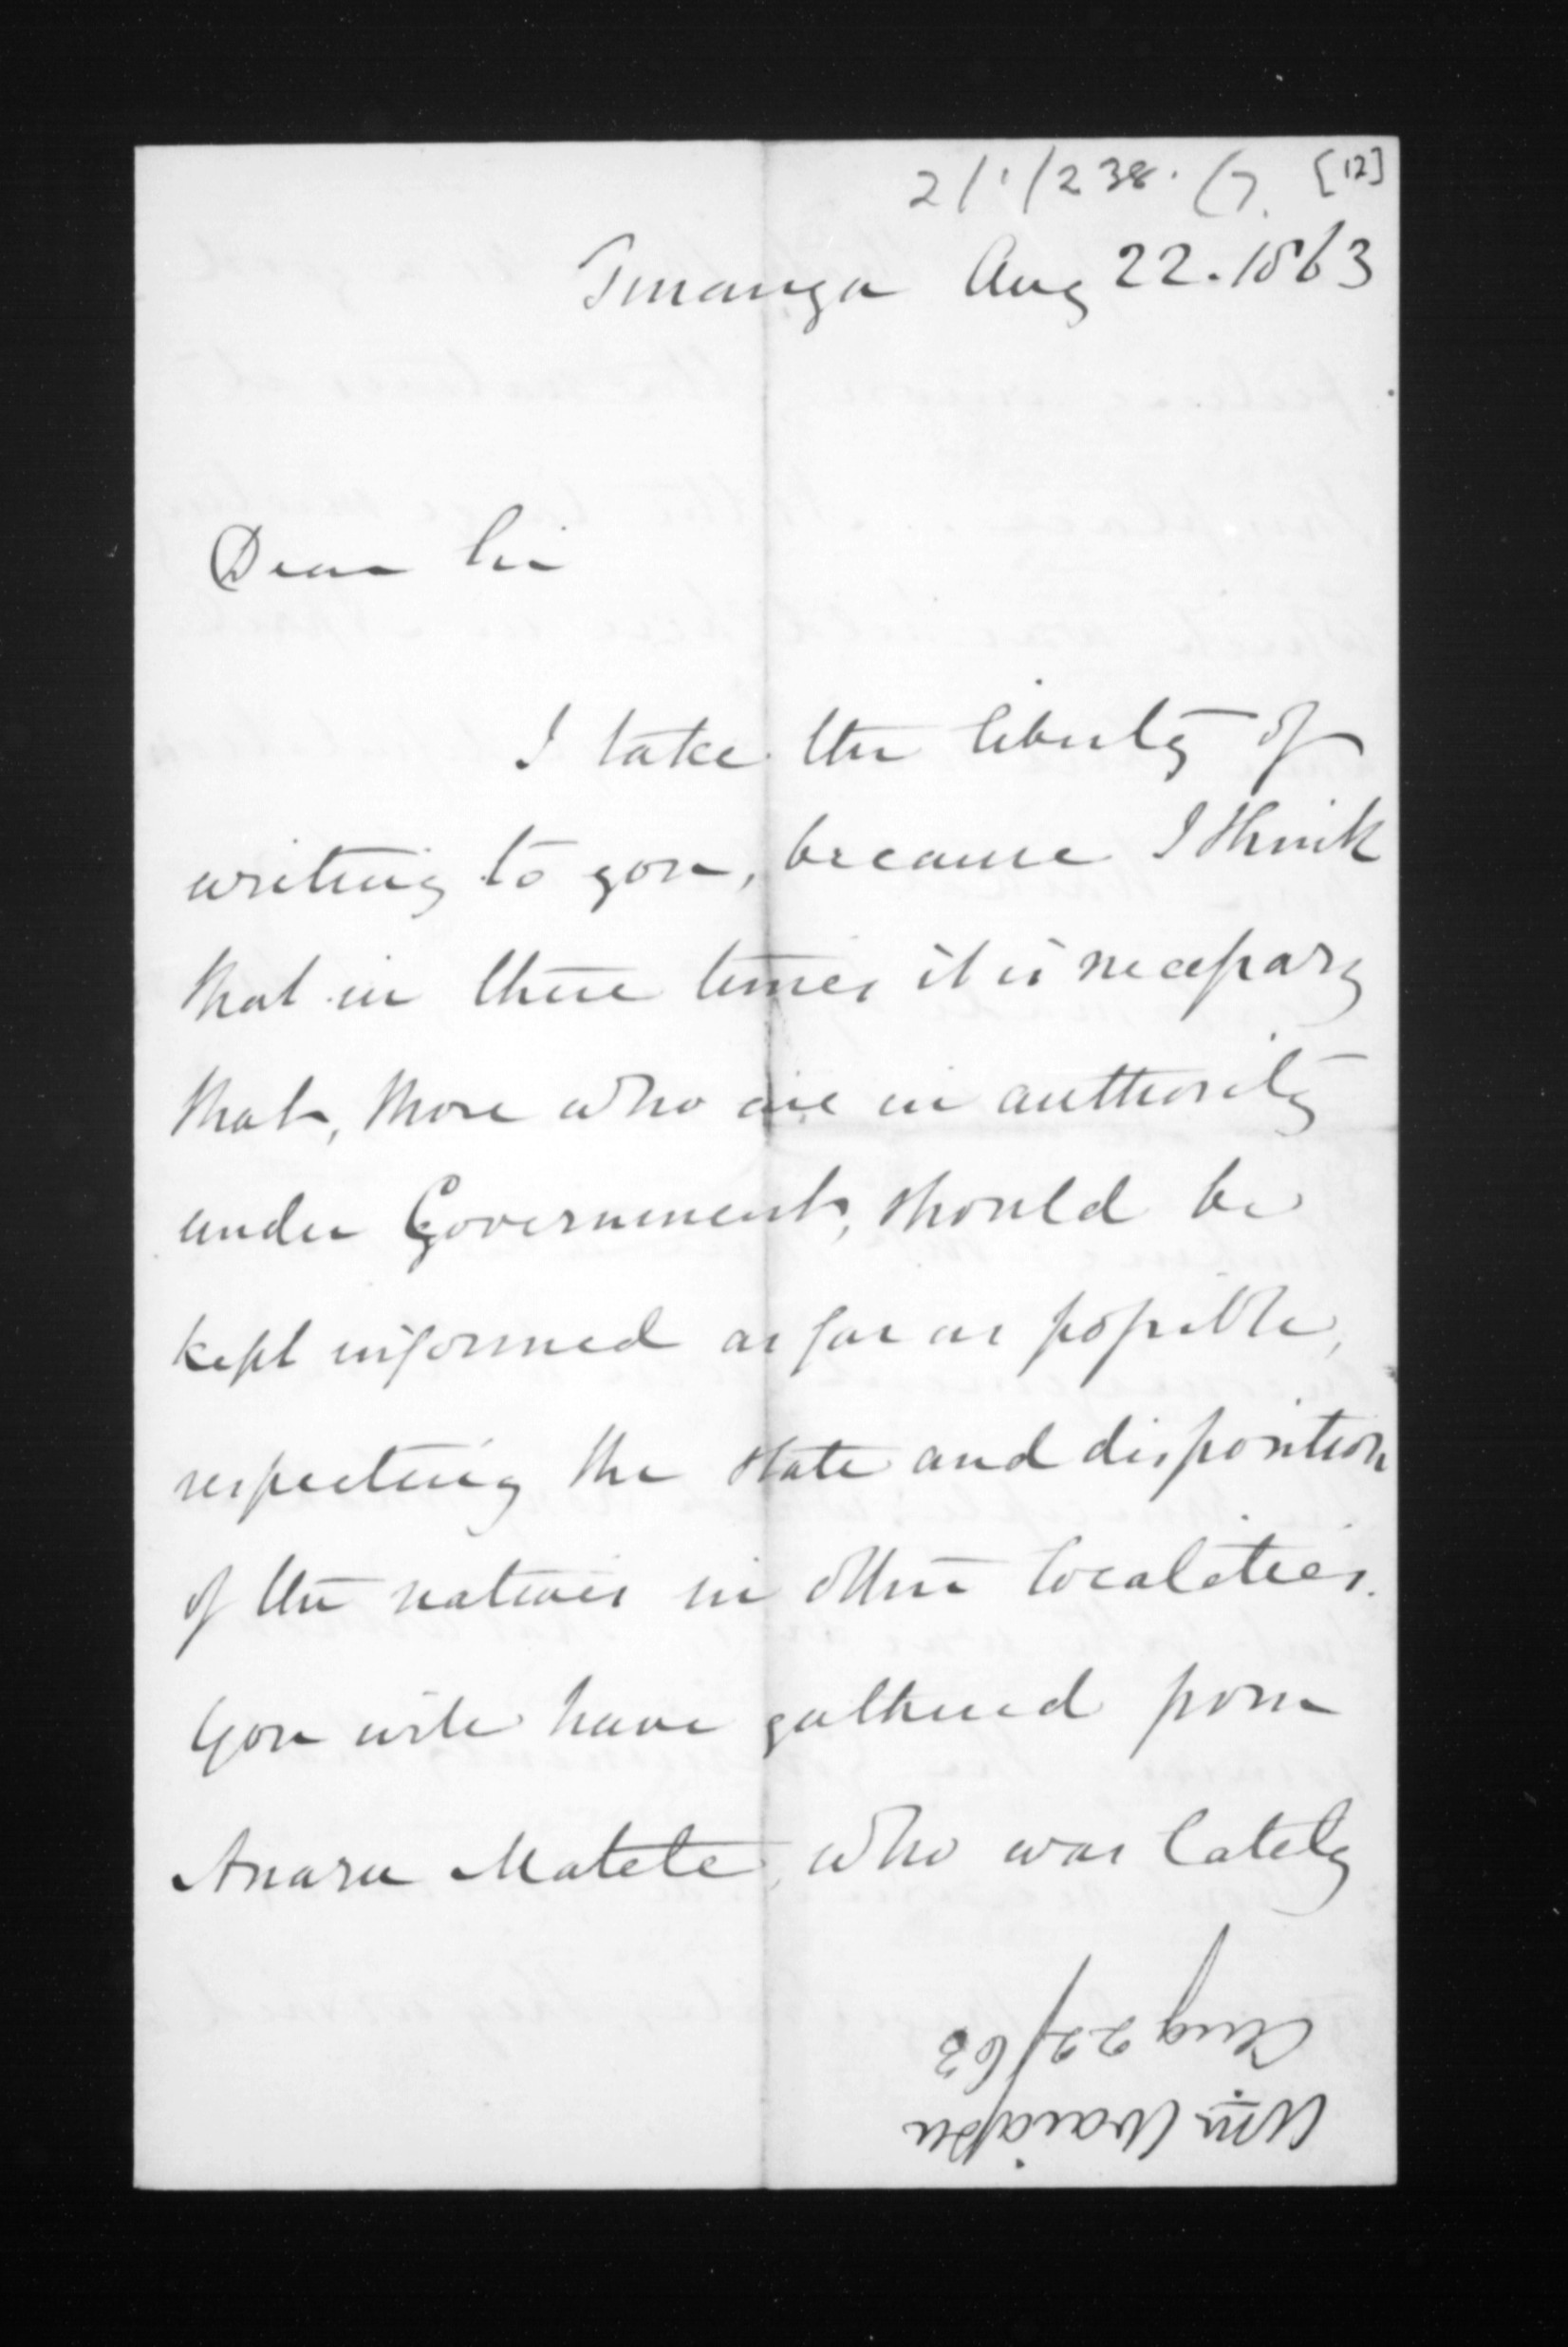 2/1/238. G. [12]
Turanga Aug 22. 1863
Dear Sir
I take the liberty of
writing to you, because I think
that in these times it is necessary
that, those who are in authority
under Government, should be
kept informed as far as possible,
respecting the state and disposition
of the natives in other localities.
You will have gathered from
Anaru Matete, who was lately
Wm Waiapu
Aug 22/63